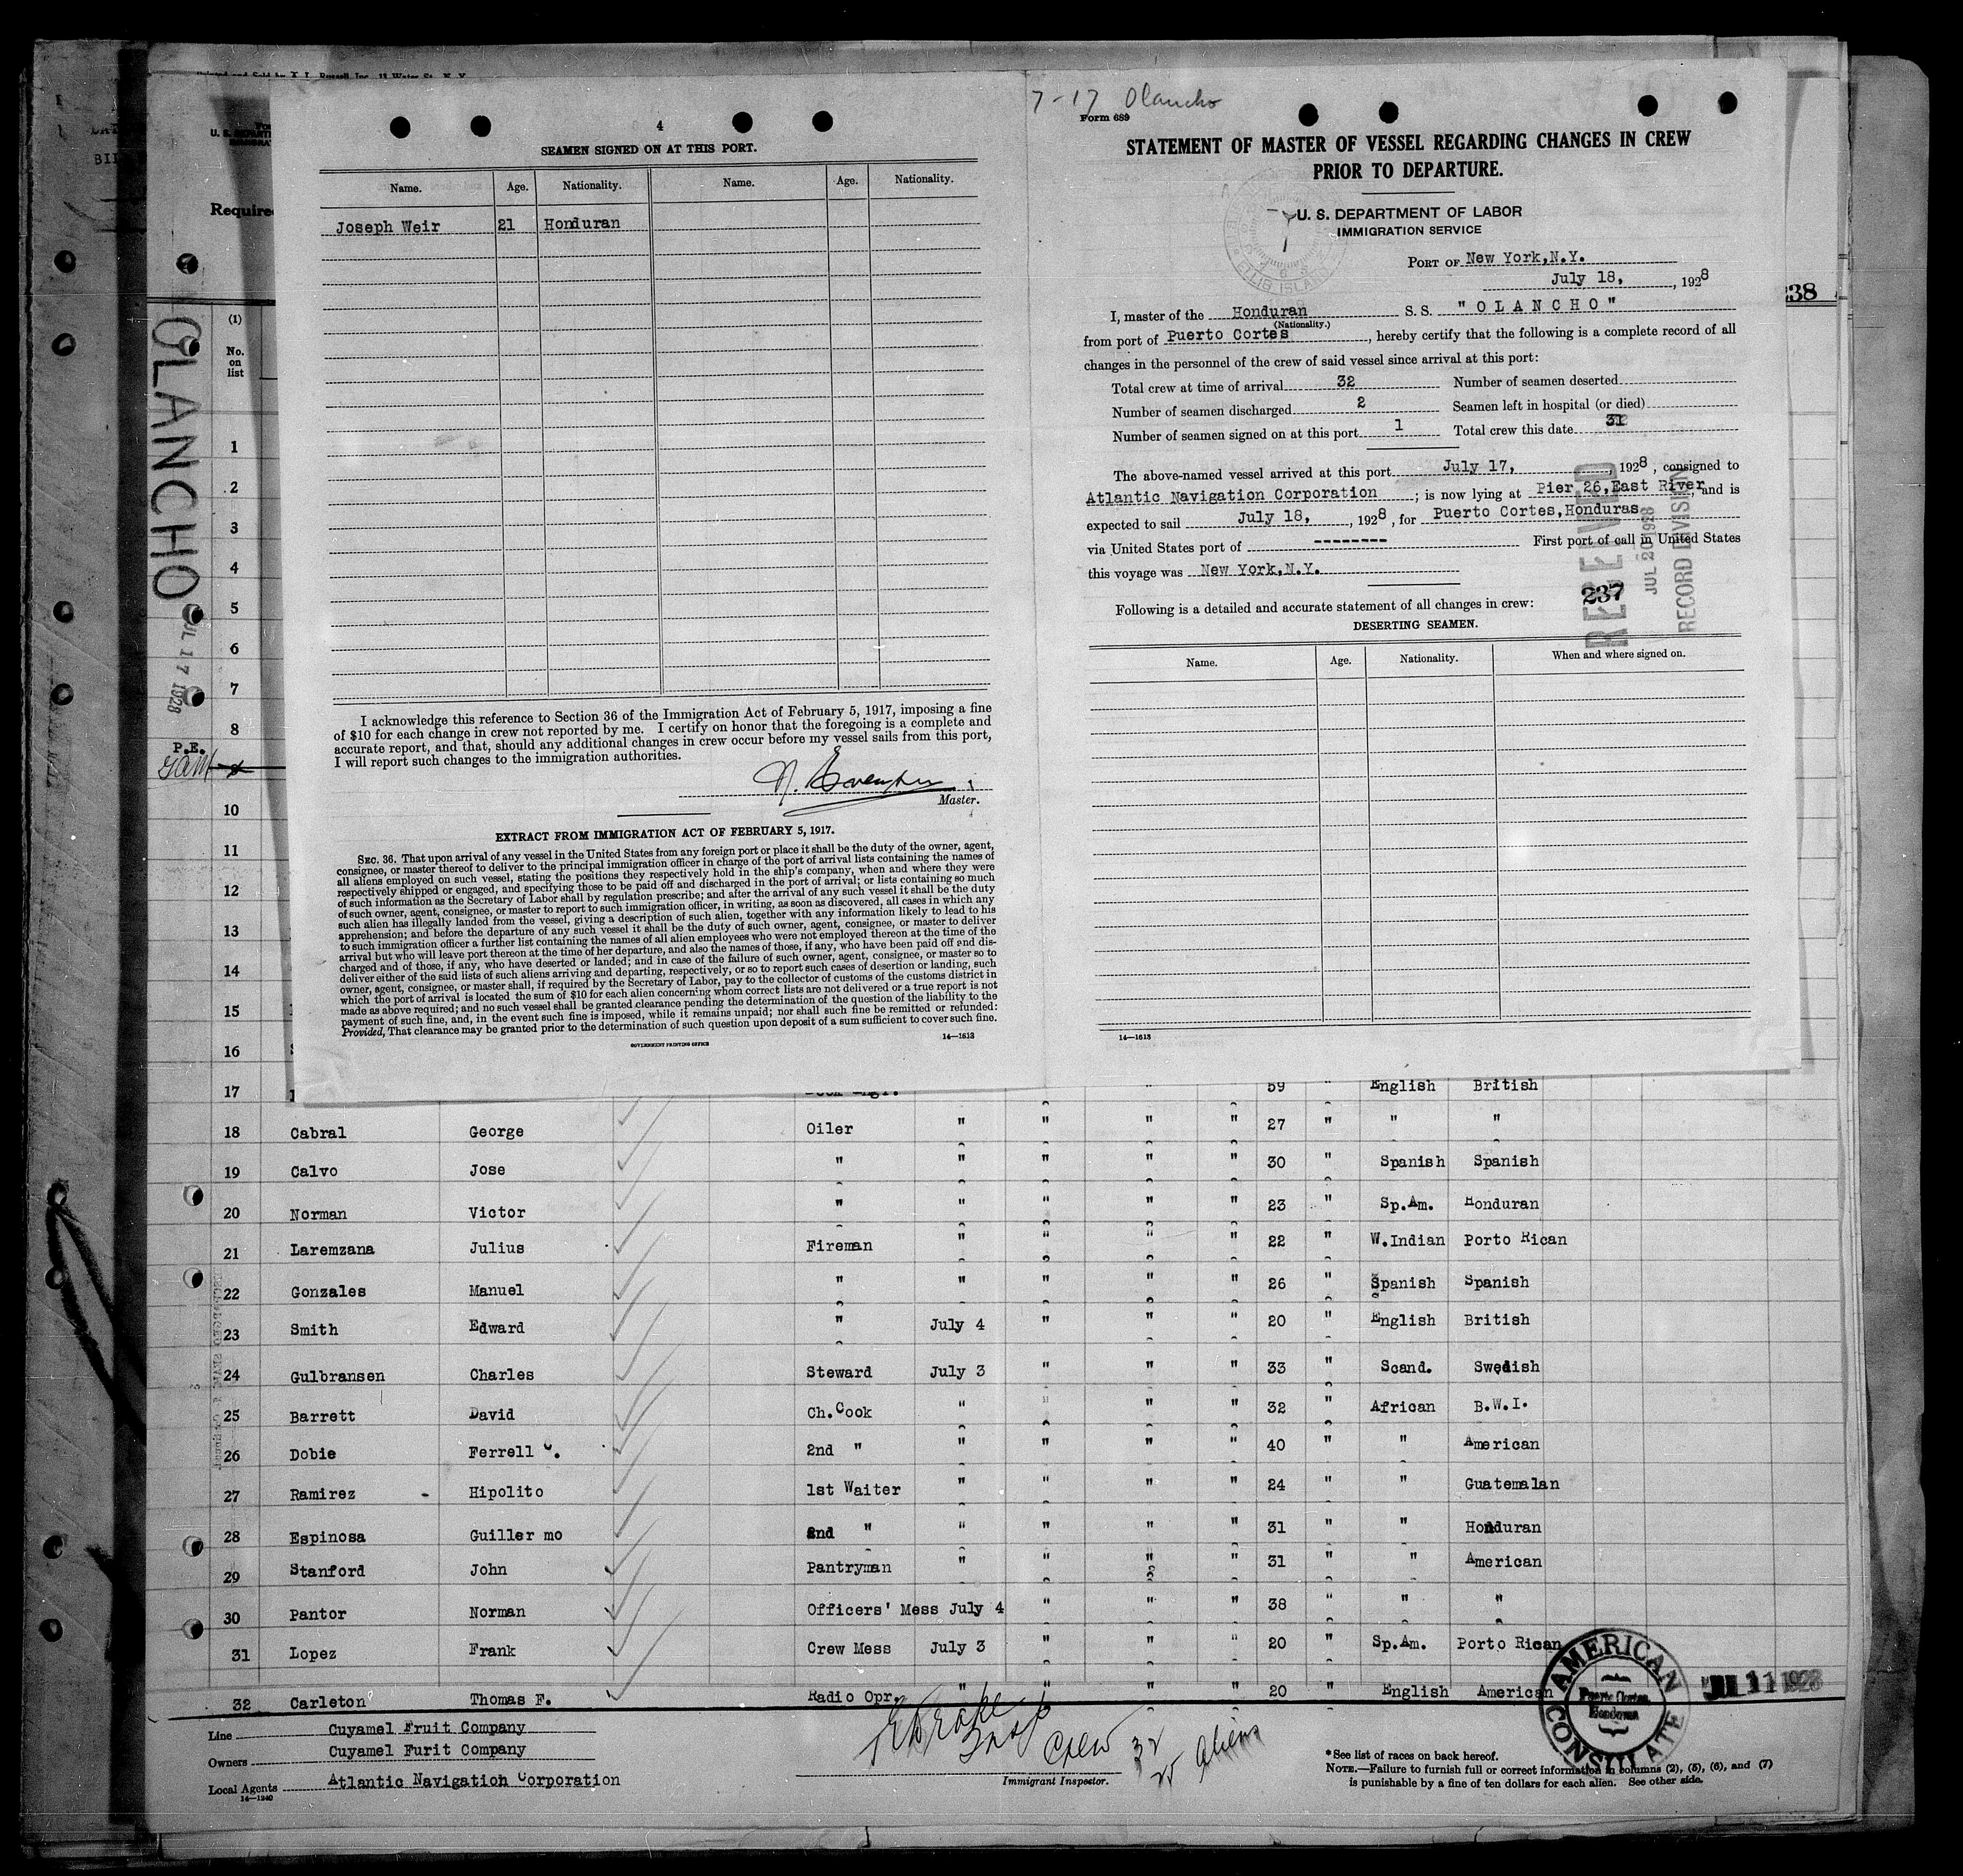 Printed and Sold by T. L. Russell Inc., 13 Water St. N. Y.
BIL
Required
OLANCHO
JUL 17 1928
P.E.
(1)
No.
on
list
1
2
3
4
5
6
7
8
10
11
12
13
14
15
16
238
4
SEAMEN SIGNED ON AT THIS PORT.
Name. Age. Nationality. Name. Age. Nationality.
Joseph Weir 21 Honduran
I acknowledge this reference to Section 36 of the Immigration Act of February 5, 1917, imposing a fine
of $10 for each change in crew not reported by me. I certify on honor that the foregoing is a complete and
accurate report, and that, should any additional changes in crew occur before my vessel sails from this port,
I will report such changes to the immigration authorities.
Master.
EXTRACT FROM IMMIGRATION ACT OF FEBRUARY 5, 1917.
SEC. 36. That upon arrival of any vessel in the United States from any foreign port or place it shall be the duty of the owner, agent,
consignee, or master thereof to deliver to the principal immigration officer in charge of the port of arrival lists containing the names of
all aliens employed on such vessel, stating the positions they respectively hold in the ship's company, when and where they were
respectively shipped or engaged, and specifying those to be paid off and discharged in the port of arrival; or lists containing so much
of such information as the Secretary of Labor shall by regulation prescribe; and after the arrival of any such vessel it shall be the duty
of such owner, agent, consignee, or master to report to such immigration officer, in writing, as soon as discovered, all cases in which any
such alien has illegally landed from the vessel, giving a description of such alien, together with any information likely to lead to his
apprehension; and before the departure of any such vessel it shall be the duty of such owner, agent, consignee, or master to deliver
to such immigration officer a further list containing the names of all alien employees who were not employed thereon at the time of the
arrival but who will leave port thereon at the time of her departure, and also the names of those, if any, who have been paid off and dis-
charged and of those, if any, who have deserted or landed; and in case of the failure of such owner, agent, consignee, or master so to
deliver either of the said lists of such aliens arriving and departing, respectively, or so to report such cases of desertion or landing, such
owner, agent, consignee, or master shall, if required by the Secretary of Labor, pay to the collector of customs of the customs district in
which the port of arrival is located the sum of $10 for each alien concerning whom correct lists are not delivered or a true report is not
made as above required; and no such vessel shall be granted clearance pending the determination of the question of the liability to the
payment of such fine, and, in the event such fine is imposed, while it remains unpaid; nor shall such fine be remitted or refunded:
Provided, That clearance may be granted prior to the determination of such question upon deposit of a sum sufficient to cover such fine.
GOVERNMENT PRINTING OFFICE 14—1613
7-17 Olancho
Form 689
STATEMENT OF MASTER OF VESSEL REGARDING CHANGES IN CREW
PRIOR TO DEPARTURE.
U. S. DEPARTMENT OF LABOR
IMMIGRATION SERVICE
ELLIS ISLAND
PORT OF New York,N.Y.
July 18, , 1928
I, master of the Honduran S. S. "OLANCHO"
(Nationality.)
from port of Puerto Cortes , hereby certify that the following is a complete record of all
changes in the personnel of the crew of said vessel since arrival at this port:
Total crew at time of arrival 32 Number of seamen deserted
Number of seamen discharged 2 Seamen left in hospital (or died)
Number of seamen signed on at this port 1 Total crew this date 31
The above-named vessel arrived at this port July 17, , 1928 , consigned to
Atlantic Navigation Corporation ; is now lying at Pier 26,East River, and is
expected to sail July 18, , 1928 , for Puerto Cortes,Honduras
via United States port of -------- First port of call in United States
this voyage was New York,N.Y.
RECEIVED
JUL 20 1928
RECORD DIVISION
237
Following is a detailed and accurate statement of all changes in crew:
DESERTING SEAMEN.
Name. Age. Nationality. When and where signed on.
14—1613
17 59 " English British
18 Cabral George Oiler " " " " 27 " " "
19 Calvo Jose " " " " " 30 " Spanish Spanish
20 Norman Victor " " " " " 23 " Sp.Am. Honduran
21 Laremzana Julius Fireman " " " " 22 " W.Indian Porto Rican
22 Gonzales Manuel " " " " " 26 " Spanish Spanish
23 Smith Edward " July 4 " " " 20 " English British
24 Gulbransen Charles Steward July 3 " " " 33 " Scand. Swedish
25 Barrett David Ch.Cook " " " " 32 " African B.W.I.
26 Dobie Ferrell C. 2nd " " " " " 40 " " American
27 Ramirez - Hipolito 1st Waiter " " " " 24 " " Guatemalan
28 Espinosa Guiller mo 2nd " " " " " 31 " " Honduran
29 Stanford John Pantryman " " " " 31 " " American
30 Pantor Norman Officers' Mess July 4 " " " 38 " " "
31 Lopez Frank Crew Mess July 3 " " " 20 " Sp.Am. Porto Rican
32 Carleton Thomas F. Radio Opr. " " " " 20 " English American
AMERICAN CONSULATE
Puerto Cortes,
Honduras
JUL 11 1928
Line Cuyamel Fruit Company
Owners Cuyamel Furit Company
Local Agents Atlantic Navigation Corporation
14—1240
Insp
Crew 32
25 Aliens
Immigrant Inspector.
*See list of races on back hereof.
NOTE.—Failure to furnish full or correct information in columns (2), (5), (6), and (7)
is punishable by a fine of ten dollars for each alien. See other side.